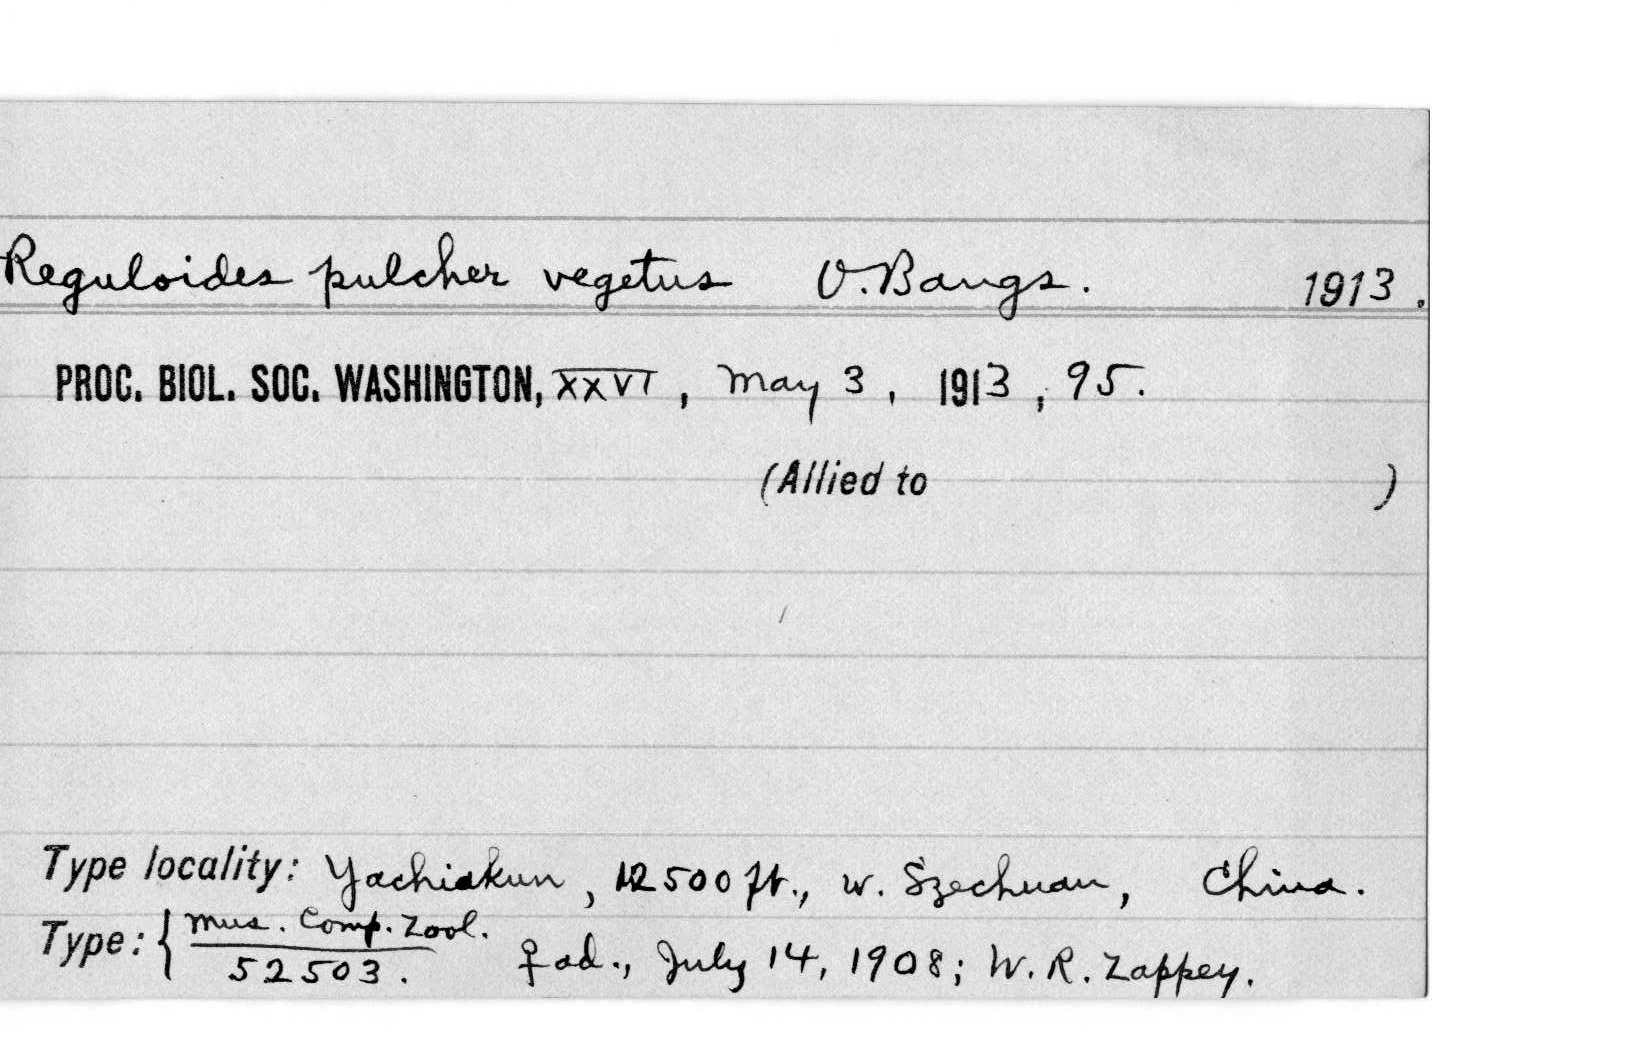 Reguloides pulcher vegetus O. Bangs. 1913.
PROC. BIOL. SOC. WASHINGTON, XXVI, May 3, 1913, 95.
(Allied to )
Type locality: Yachiakun, 12500 ft., W. Szechuan, China.
Type: { Mus. Comp. Zool.
52503. ♀ ad., July 14, 1908; W. R. Zappey.